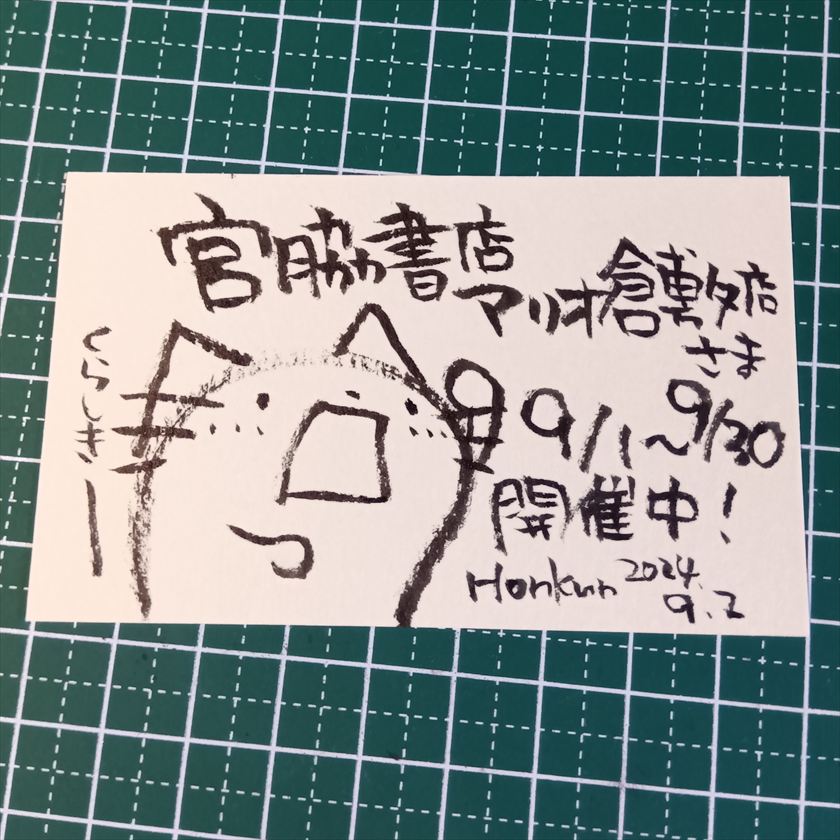 宮脇書店
マリオ倉敷店
さま
くらしきー
9/1～9/30
開催中!
Honkun 2024.
9.2